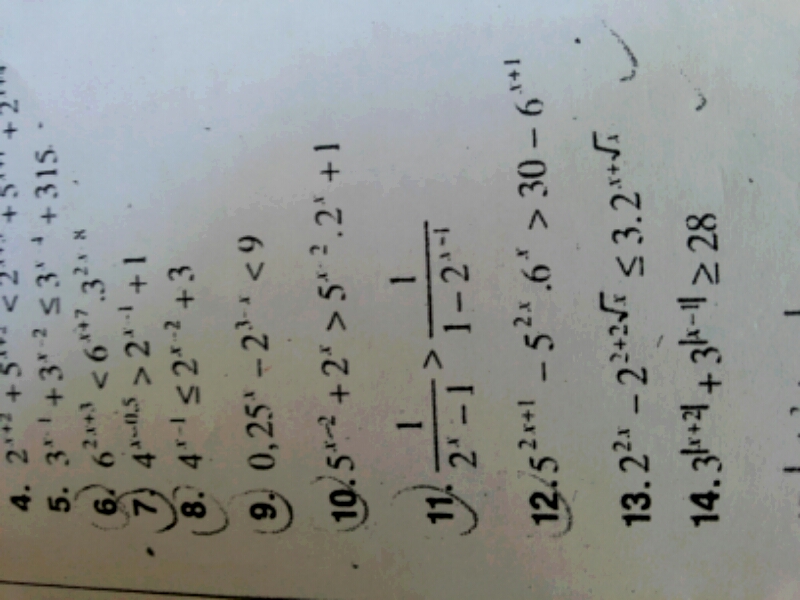 4. 2^{x+2} + 5^{x+2} < 2
5. 3^{x-1} + 3^{x-2} ≤ 3^{x-4} + 315.
6. 6^{2x+3} < 6^{x+7} . 3^{2x-8}
7. 4^{x-0,5} > 2^{x-1} + 1
8. 4^{x-1} ≤ 2^{x-2} + 3
9. 0,25^x - 2^{3-x} < 9
10. 5^{x-2} + 2^x > 5^{x-2} . 2^x + 1
11. \frac{1}{2^x - 1} > \frac{1}{1 - 2^{x-1}}
12. 5^{2x+1} - 5^{2x} . 6^x > 30 - 6^{x+1}
13. 2^{2x} - 2^{2+2√x} ≤ 3.2^{x+√x}
14. 3^{|x+2|} + 3^{|x-1|} ≥ 28